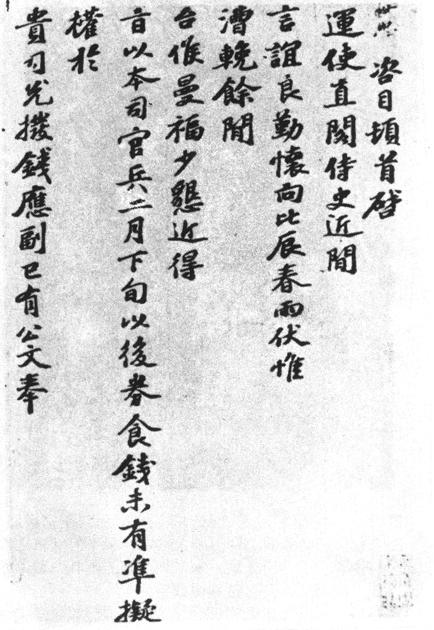 咨目頓首啓
運使直閣侍史近間
言誼良勤懷向比辰春雨伏惟
漕輓餘間
台候曼福少懇近得
旨以本司官兵二月下旬以後券食錢未有準擬
權於
貴司先撥錢應副已有公文奉